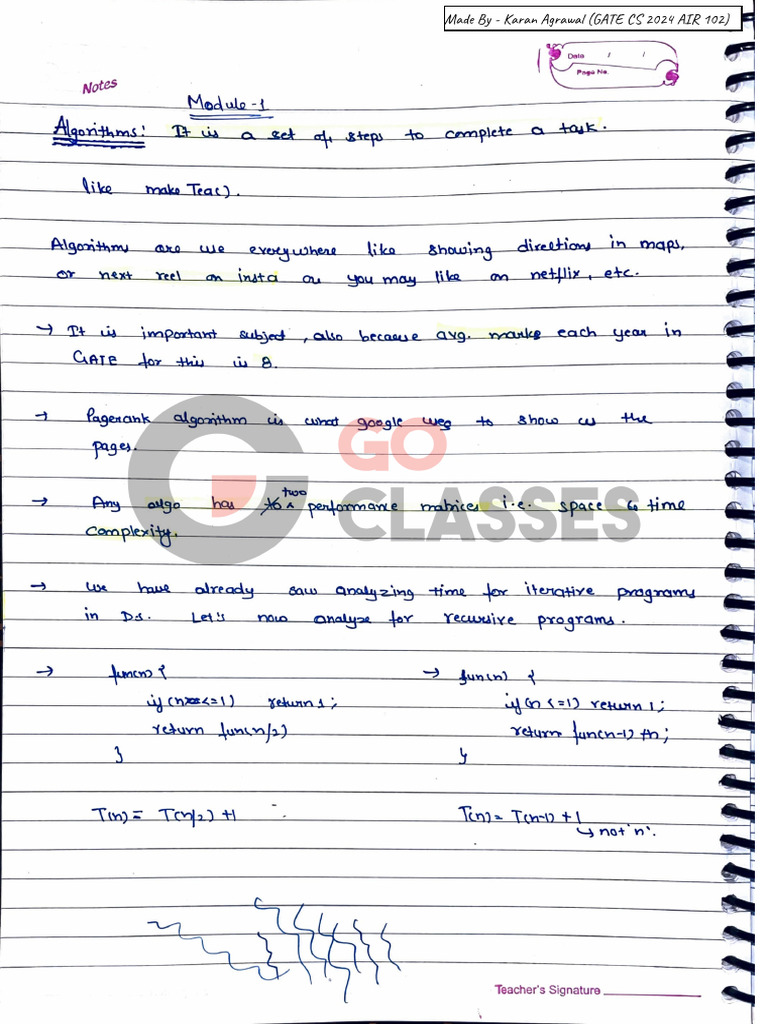 Made By - Karan Agrawal (GATE CS 2024 AIR 102)
Date / /
Page No.
Notes
Module-1
Algorithms: It is a set of steps to complete a task.
like makeTea().
Algorithms are use everywhere like showing directions in maps,
or next reel on insta or you may like on netflix, etc.
→ It is important subject, also because avg. marks each year in
GATE for this is 8.
→ Pagerank algorithm is what google uses to show us the
pages.
GO
CLASSES
→ Any algo has two performance matrices i.e. space & time
complexity.
→ We have already saw analyzing time for iterative programs
in D.S. Let's now analyze for recursive programs.
→ fun(n) {
if(n<=1) return 1;
return fun(n/2)
}
T(n) = T(n/2) + 1
→ fun(n) {
if(n <=1) return 1;
return fun(n-1) +n;
}
T(n) = T(n-1) + 1
↳ not 'n'.
Teacher's Signature